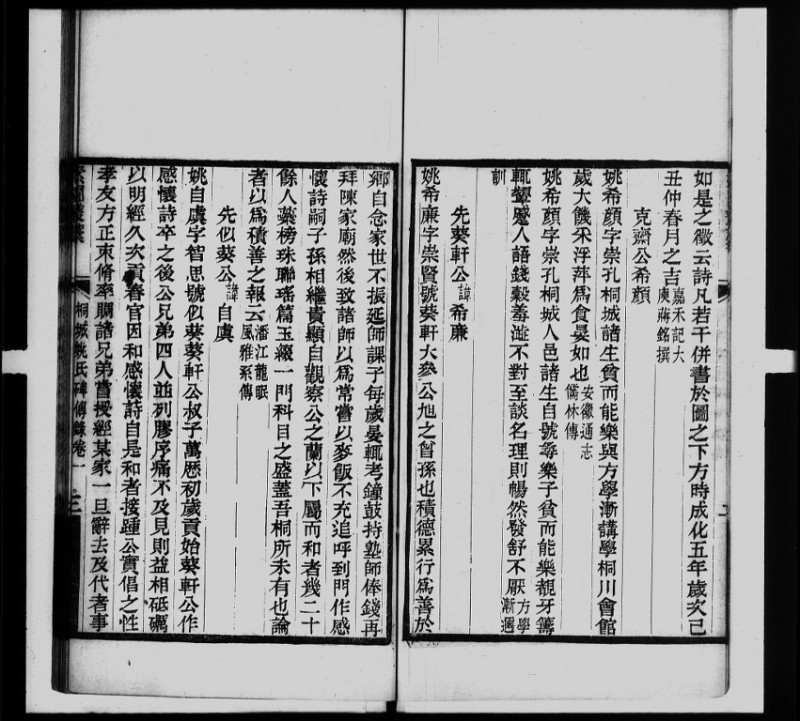 如是之徵云詩凡若干併書於圖之下方時成化五年歲次己
丑仲春月之吉嘉禾記大庾蔣銘撰
克齋公希顏
姚希顏字崇孔桐城諸生貧而能樂與方學漸講學桐川會館
歲大饑采浮萍爲食晏如也安徽通志儒林傳
姚希顏字崇孔桐城人邑諸生自號尋樂子貧而能樂覩牙籌
輒顰蹙人語錢穀羞澁不對至談名理則暢然發舒不厭方學漸邇
訓
先葵軒公諱希廉
姚希廉字崇賢號葵軒大參公旭之曾孫也積德累行爲善於
鄉自念家世不振延師課子每歲晏輒考鐘鼓持塾師俸錢再
拜陳家廟然後致諸師以爲常嘗以麥飯不充追呼到門作感
懷詩嗣子孫相繼貴顯自觀察公之蘭以下屬而和者幾二十
餘人蘂榜珠聯瑤篇玉綴一門科目之盛蓋吾桐所未有也論
者以爲積善之報云潘江龍眠風雅系傳
先似葵公諱自虞
姚自虞字智思號似葵葵軒公叔子萬歷初歲貢始葵軒公作
感懷詩卒之後公兄弟四人並列膠序痛不及見則益相砥礪
以明經久次貢春官因和感懷詩自是和者接踵公實倡之性
孝友方正束脩率關諸兄弟嘗授經某家一旦辭去及代者事
桐城姚氏碑傳錄卷一
三